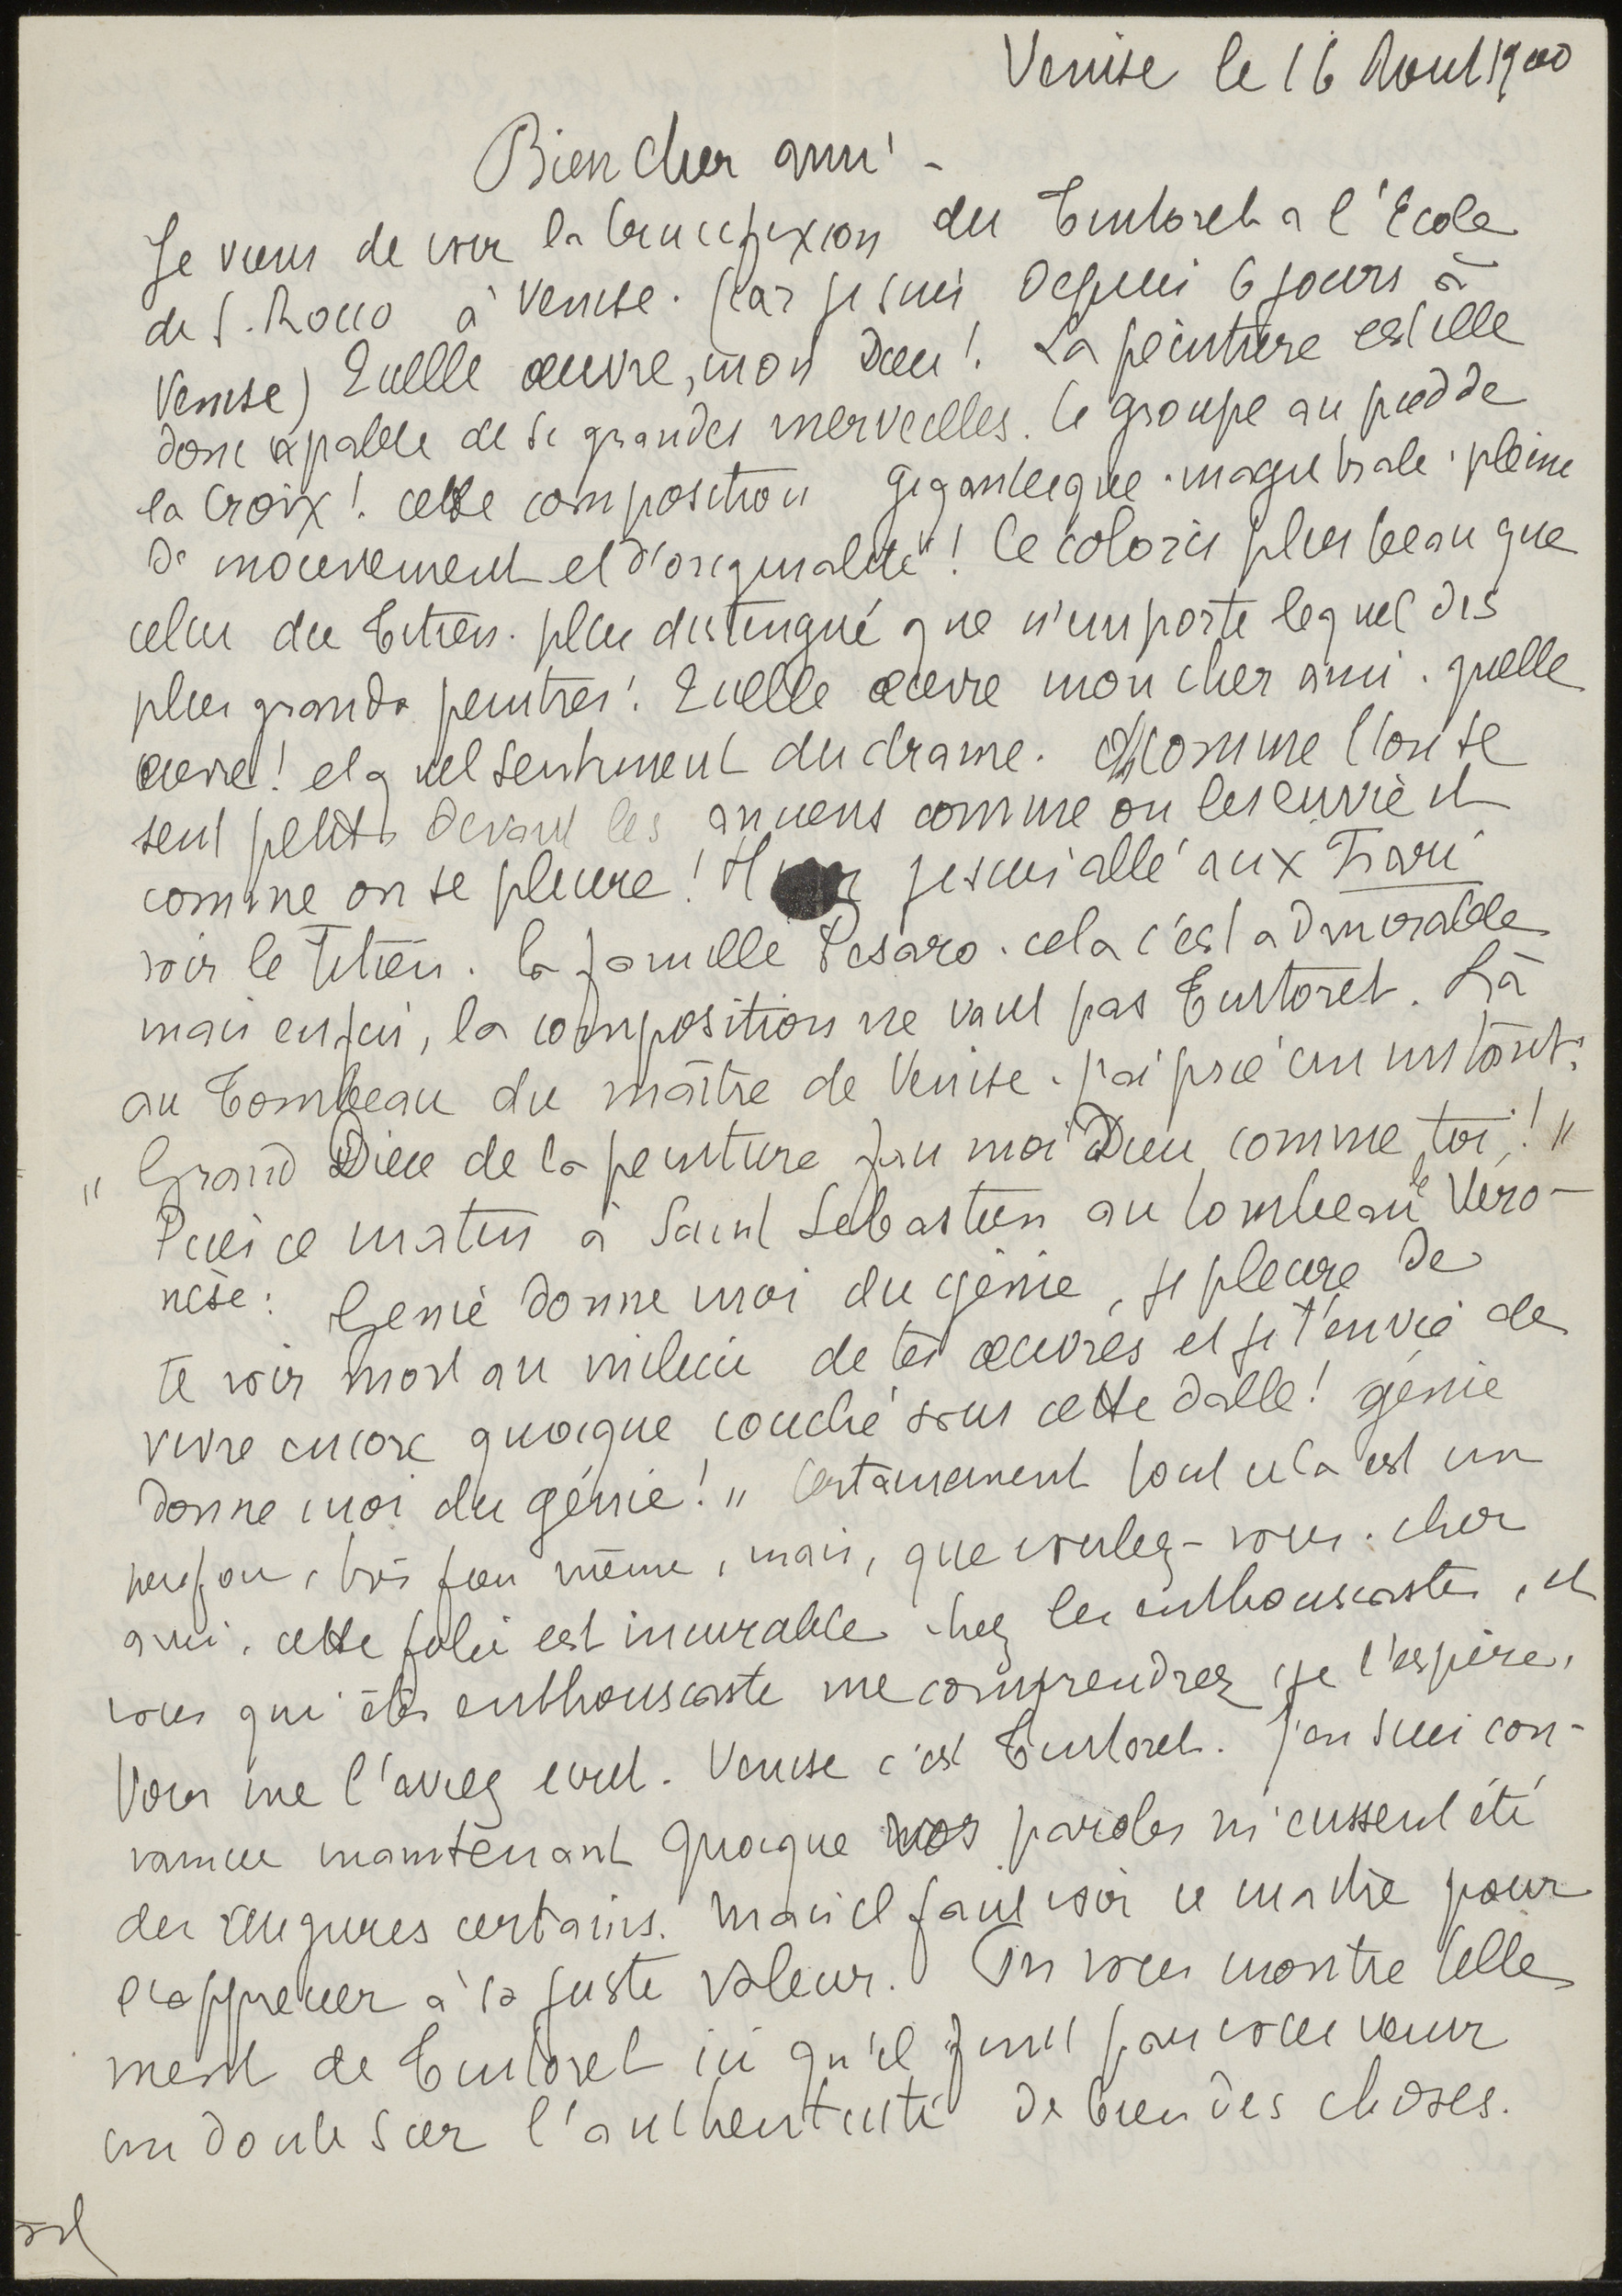 Venise le 16 Aout 1900
Bien cher ami -
Je viens de voir la Crucifixion du Tintoret a l'Ecole
de S. Rocco à Venise. (car je suis depuis 6 jours à
Venise) Quelle œuvre, mon Dieu! La peinture est elle
donc capable de si grandes merveilles. Ce groupe au pied de
la Croix! cette composition gigantesque. magistrale. pleine
de mouvement et d'originalité! Ce coloris plus beau que
celui du Titien. plus distingué que n'importe lequel des
plus grands peintres! Quelle œuvre mon cher ami. quelle
œuvre! et quel sentiment du drame. Comme l'on se
sent petits devant les anciens comme on les envie et
comme on se pleure! Hier je suis allé aux Frari
voir le Titien. la famille Pesaro. cela c'est admirable
mais enfin, la composition ne vaut pas Tintoret. Là
au Tombeau du maître de Venise. j'ai prié un instant:
"Grand Dieu de la peinture fais moi Dieu comme toi!"
Puis ce matin à Saint Sebastien au tombeau de Véro-
nèse: Genie donne moi du génie, je pleure de
te voir mort au milieu de tes œuvres et je t'envie de
vivre encore quoique couché sous cette dalle! génie
donne moi du génie!" Certainement tout cela est un
peu fou, très fou même, mais, que voulez-vous. cher
ami, cette folie est incurable chez les enthousiastes, et
vous qui êtes enthousiaste me comprendrez je l'espère.
Vous me l'aviez ecrit. Venise c'est Tintoret. J'en suis con-
vaincu maintenant quoique vos paroles m'eussent été
des augures certains. Mais il faut voir ce maitre pour
l'apprecier à sa juste valeur. On vous montre telle
ment de Tintoret ici qu'il finit par vous venir
un doute sur l'authenticité de bien des choses.